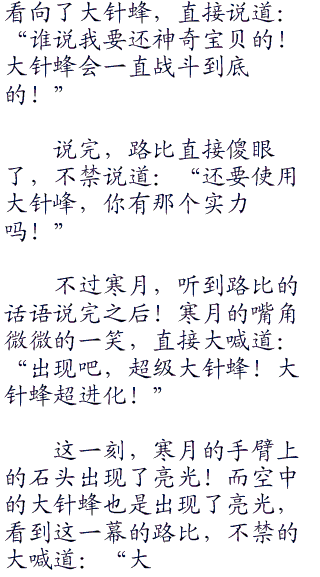 看向了大针蜂，直接说道：
“谁说我要还神奇宝贝的！
大针蜂会一直战斗到底
的！”
说完，路比直接傻眼
了，不禁说道：“还要使用
大针峰，你有那个实力
吗！”
不过寒月，听到路比的
话语说完之后！寒月的嘴角
微微的一笑，直接大喊道：
“出现吧，超级大针蜂！大
针蜂超进化！”
这一刻，寒月的手臂上
的石头出现了亮光！而空中
的大针蜂也是出现了亮光，
看到这一幕的路比，不禁的
大喊道：“大